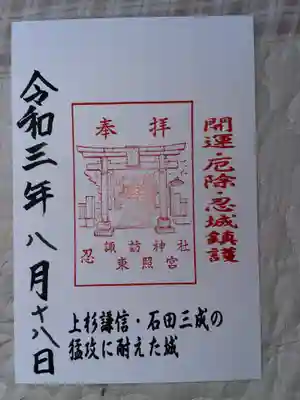 開運・厄除・忍城鎮護
奉拝
忍 諏訪神社
東照宮
令和三年八月十八日
上杉謙信・石田三成の
猛攻に耐えた城